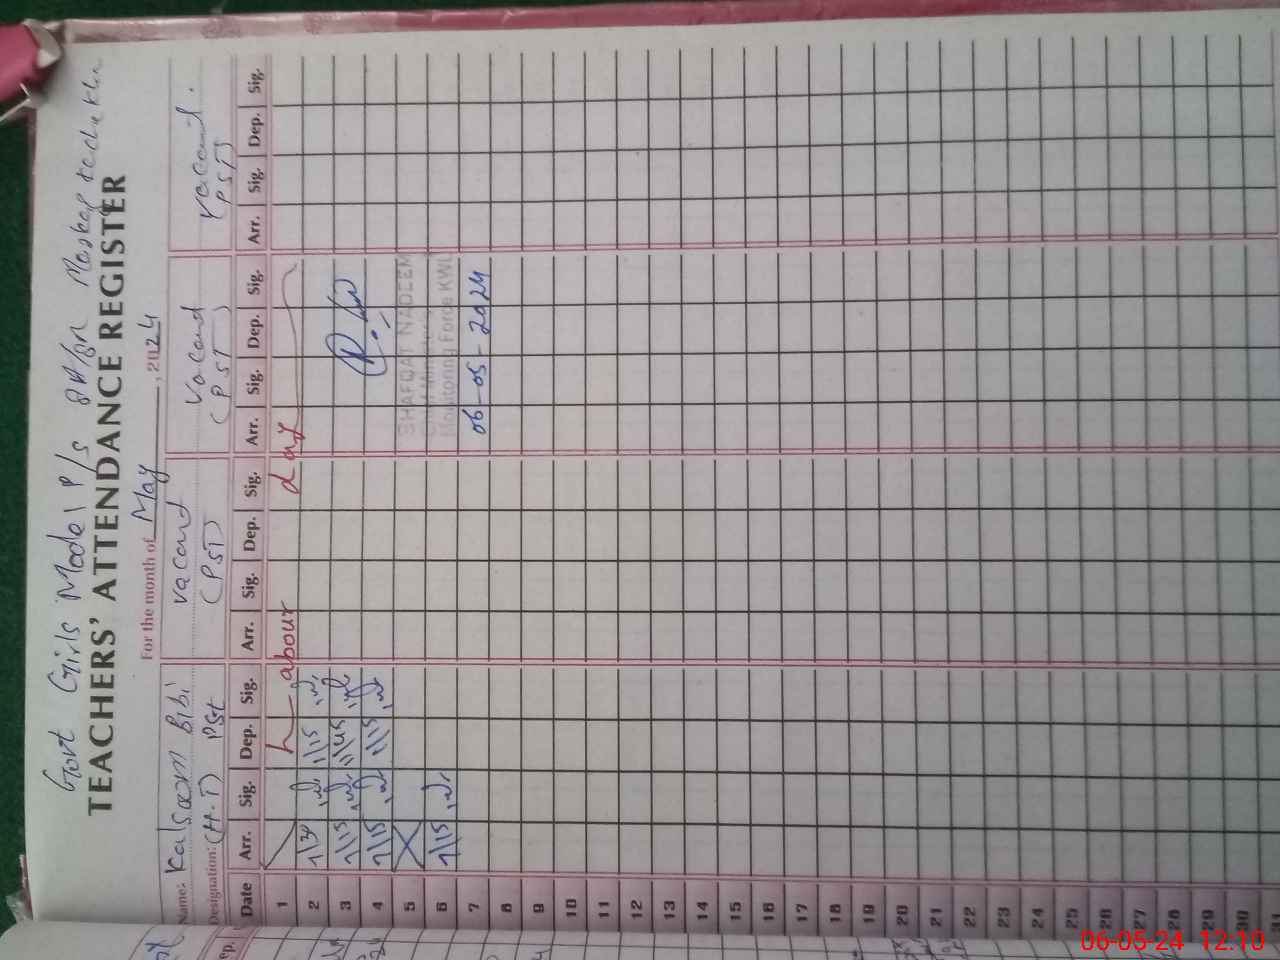 Govt Girls Model P/s
TEACHERS' ATTENDANCE REGISTER
For the month of May, 2024
Name: Kalsoom Bibi vacand vacand
Designation: (H.T) PST (PST) (PST) (PST)
Date Arr. Sig. Dep. Sig. Arr. Sig. Dep. Sig. Arr. Sig. Dep. Sig. Arr. Sig. Dep. Sig.
1 Labour day
2 7/30 1/15
3 7/15 11/45
4 7/15 1/15
5
6 7/15
7
8
9
10
11
12
13
14
15
16
17
18
19
20
21
22
23
24
25
26
27
28
29
30
31
SHAFQAT NADEEM
Monitoring Force KWL
06-05-2024
06-05-24 12:10